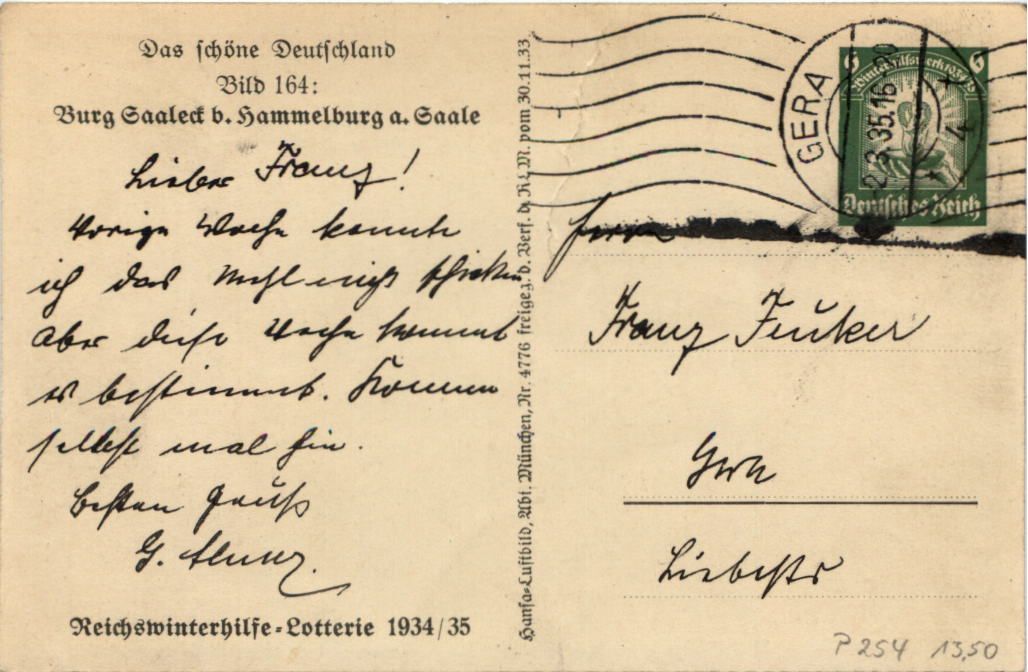 Das schöne Deutschland
Bild 164:
Burg Saaleck b. Hammelburg a. Saale
Lieber Franz!
Vorige Woche konnte
ich das Mehl nicht schicken
Aber diese Woche kommt
es bestimmt. Komme
selbst mal hin.
Besten Gruß
G.
Reichswinterhilfe-Lotterie 1934/35
Hansa-Luftbild, Abt. München, Nr. 4776 freigeg. d. Verf. d. R.L.M. vom 30.11.33
GERA
2.3.35.16-
4
6 6
Winterhilfswerk 1934/35
Deutsches Reich
Herrn
Franz
Gera
P 254 13,50